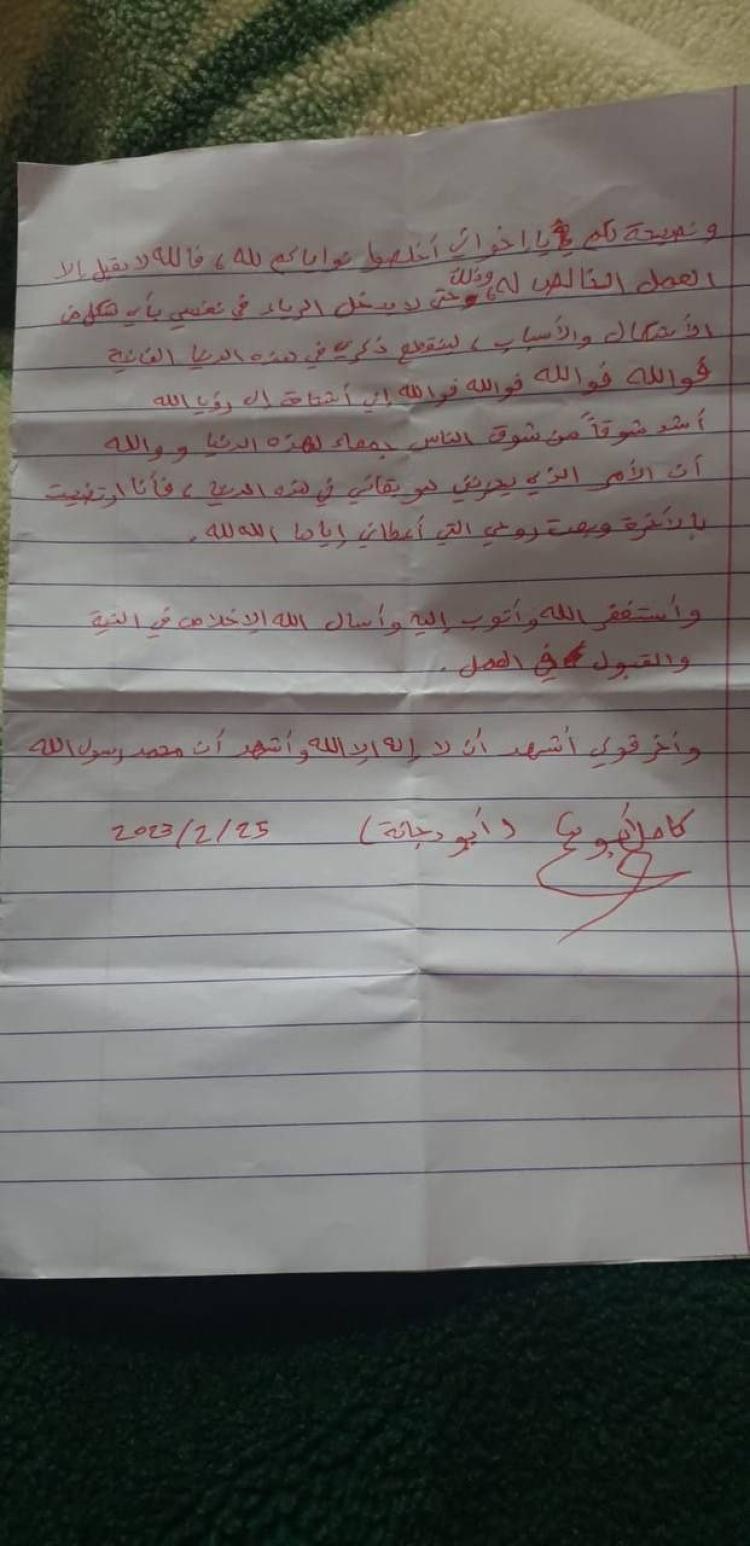 ونصيحة لكم يا إخواني أخلصوا نواياكم لله، فالله لا يقبل إلا
العمل الخالص له، وذلك حتى لا يدخل الرياء في نفسي بأي شكل من
الأشكال والأسباب، لينقطع ذكري في هذه الدنيا الفانية
فوالله فوالله فوالله فوالله إني أشتاق إلى رؤيا الله
أشد شوقاً من شوق الناس ببقاء لهذه الدنيا ووالله
أن الأمر الذي يحزنني هو بقائي في هذه الدنيا، فأنا ارتضيت
بالآخرة وبعت روحي التي أعطاني إياها الله لله.
وأستغفر الله وأتوب إليه وأسال الله الإخلاص في النية
والقبول في العمل.
وآخر قولي أشهد أن لا إله إلا الله وأشهد أن محمد رسول الله
كامل (أبو دجانة) 2023/2/25